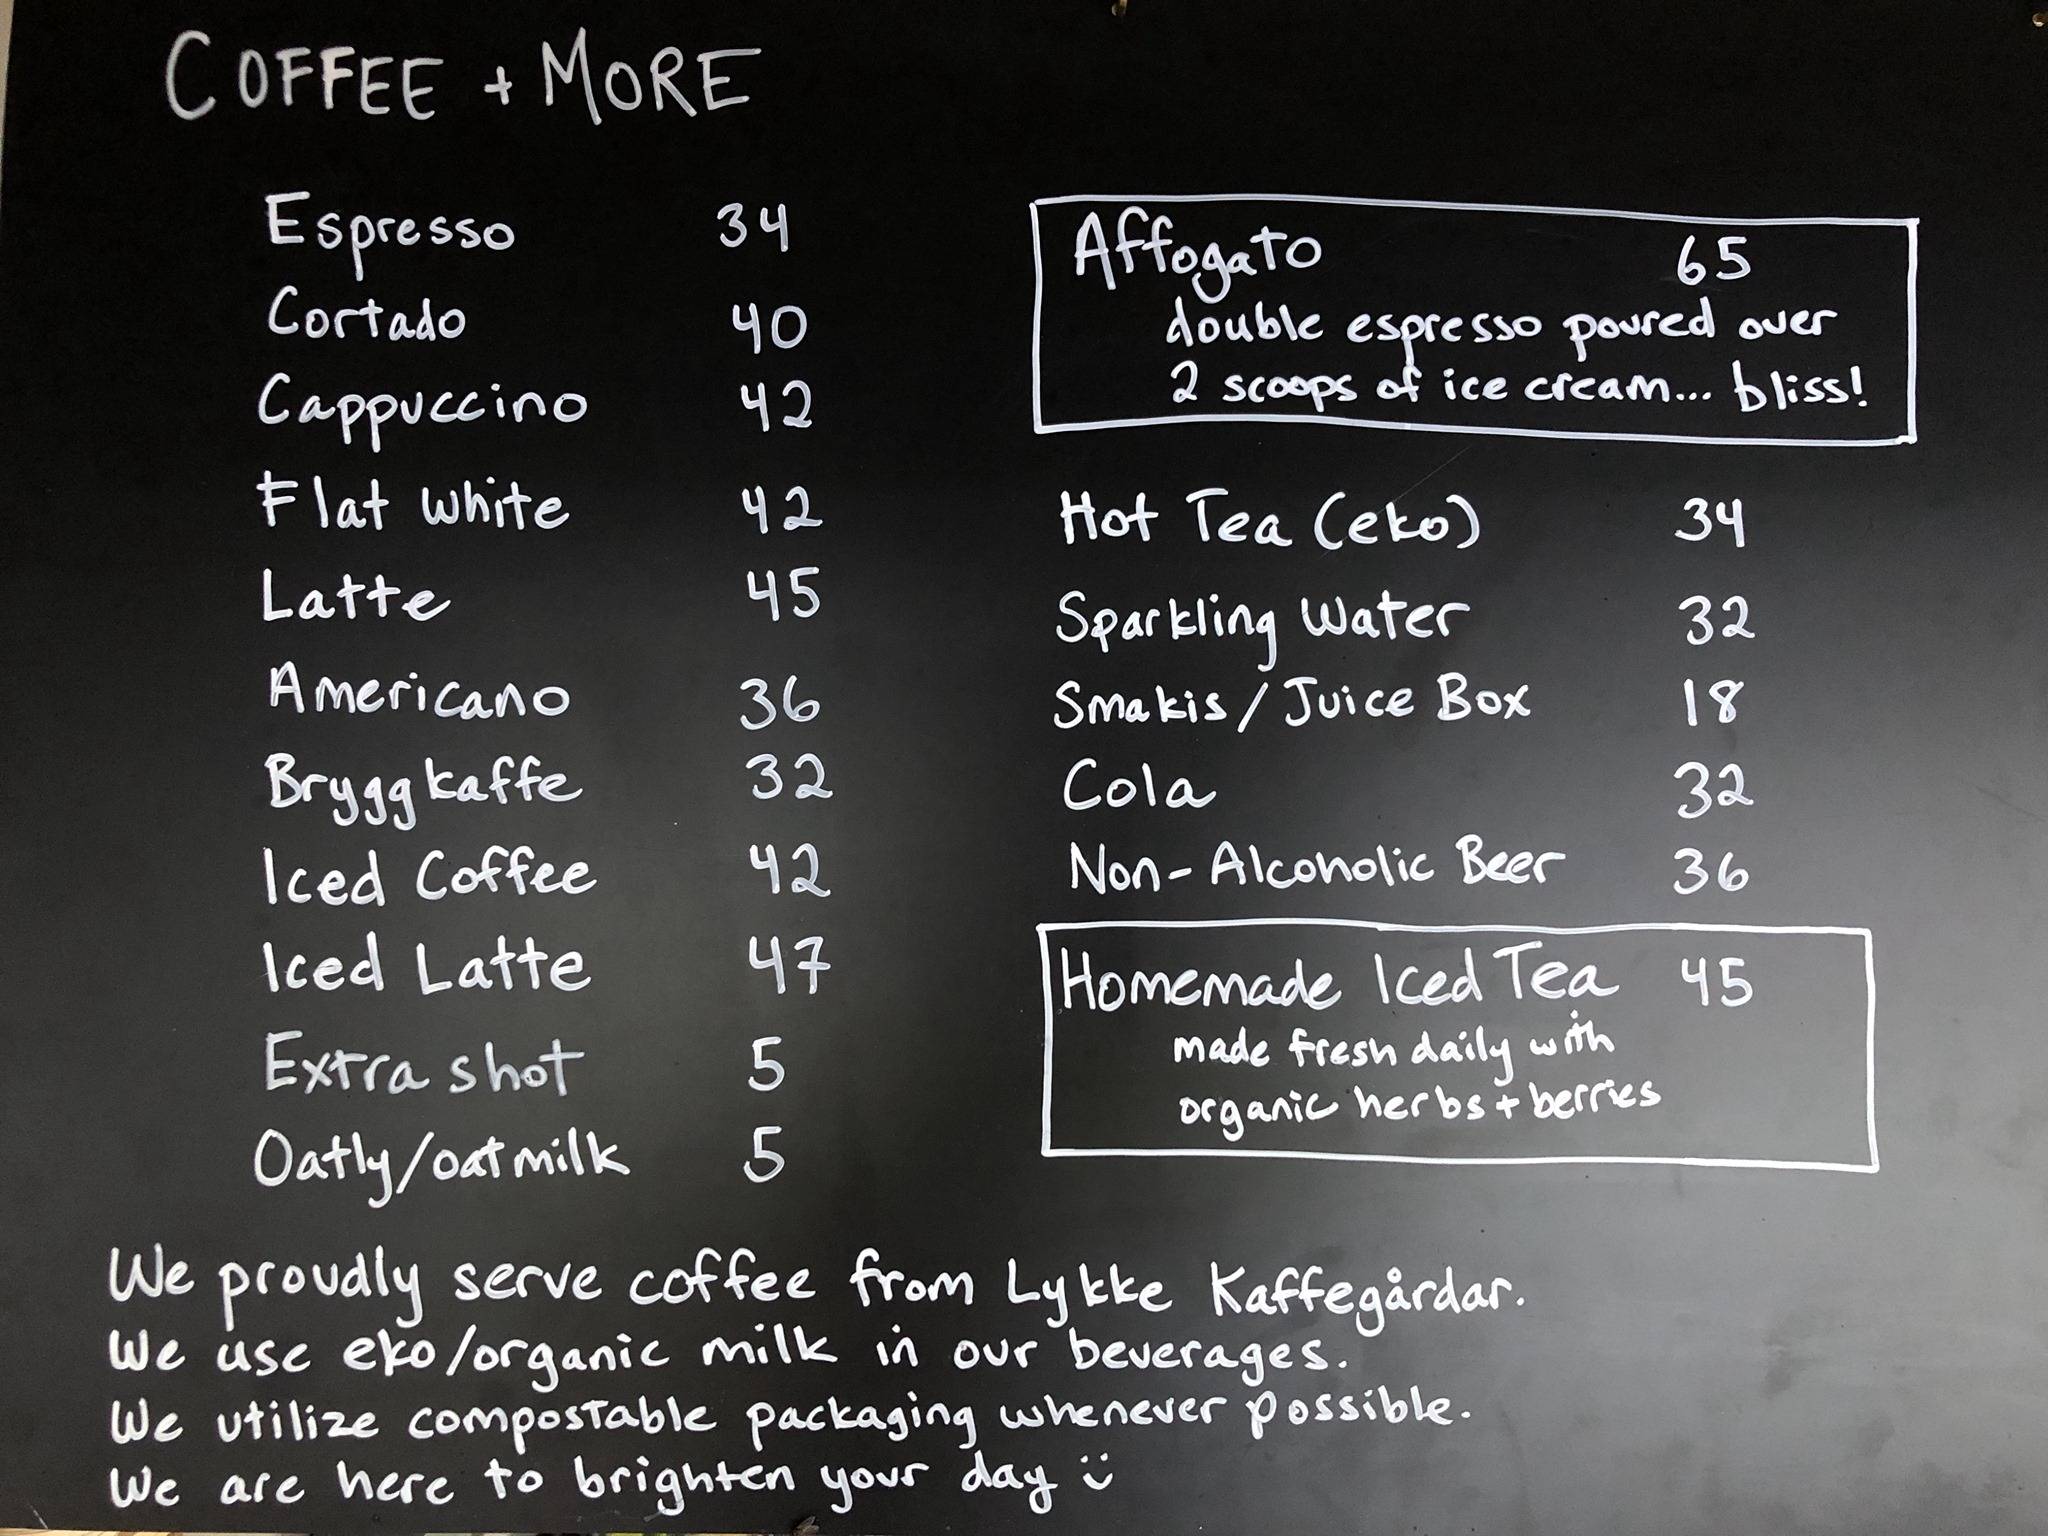 COFFEE + MORE
Espresso 34
Cortado 40
Cappuccino 42
Flat White 42
Latte 45
Americano 36
Bryggkaffe 32
Iced Coffee 42
Iced Latte 47
Extra shot 5
Oatly/oatmilk 5
Affogato 65
double espresso poured over
2 scoops of ice cream... bliss!
Hot Tea (eko) 34
Sparkling Water 32
Smakis/Juice Box 18
Cola 32
Non-Alcoholic Beer 36
Homemade Iced Tea 45
made fresh daily with
organic herbs + berries
We proudly serve coffee from Lykke Kaffegårdar.
We use eko/organic milk in our beverages.
We utilize compostable packaging whenever possible.
We are here to brighten your day ü